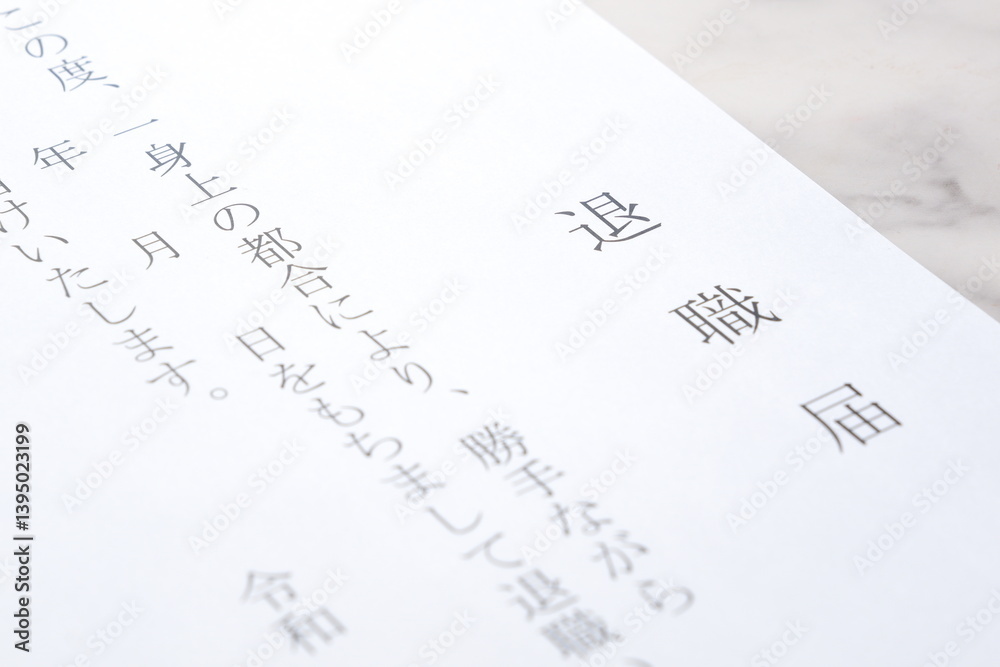 退職届
この度、一身上の都合により、勝手ながら
年 月 日をもちまして退職
けいたします。
令和
Adobe Stock | #1395023199
Adobe Stock